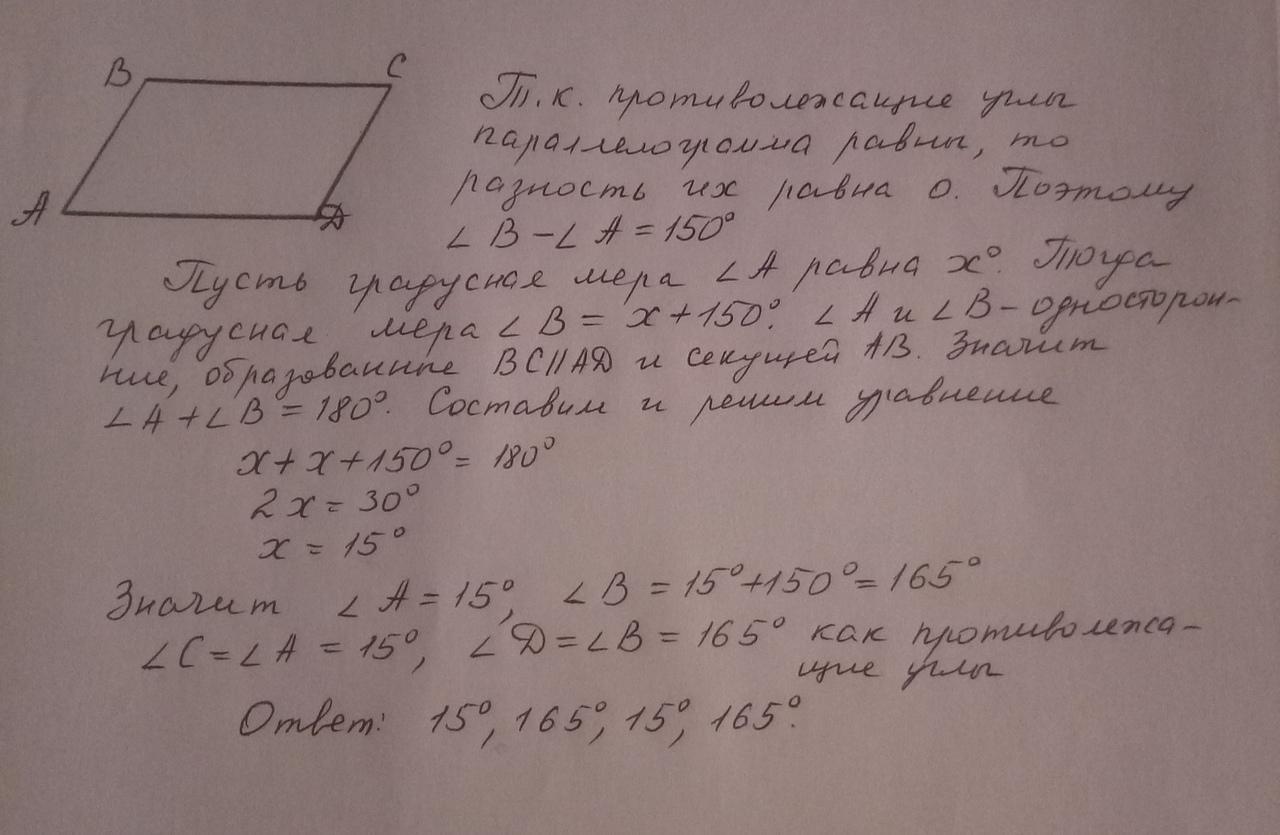 B
C
A
D
Т.к. противолежащие углы
параллелограмма равны, то
разность их равна 0. Поэтому
∠B-∠A=150°
Пусть градусная мера ∠A равна x°. Тогда
градусная мера ∠B = x+150°. ∠A и ∠B-односторон-
ние, образованные BC||AD и секущей AB. Значит
∠A+∠B=180°. Составим и решим уравнение
x+x+150°=180°
2x=30°
x=15°
Значит ∠A=15°, ∠B=15°+150°=165°
∠C=∠A=15°, ∠D=∠B=165° как противолежа-
щие углы
Ответ: 15°, 165°, 15°, 165°.